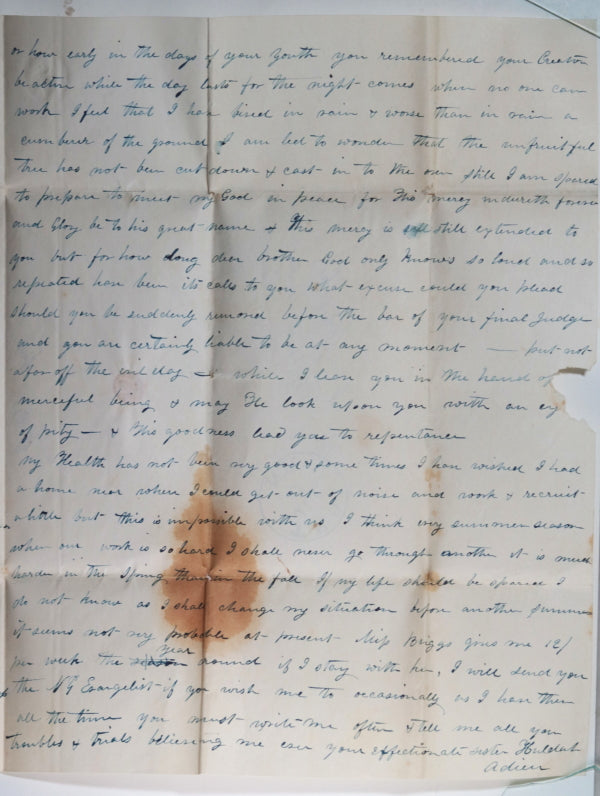 or how early in the days of your youth you remembered your Creator
be active while the day lasts for the night comes when no one can
work I feel that I have lived in vain & worse than in vain a
cumberer of the ground I am led to wonder that the unfruitful
tree has not been cut down & cast in to the oven still I am spared
to prepare to meet my God in peace for His mercy endureth forever
and Glory be to his great name & this mercy is still extended to
you but for how long dear brother God only knows so loud and so
repeated have been its calls to you what excuse could you plead
should you be suddenly removed before the bar of your final Judge
and you are certainly liable to be at any moment — put not
afar off the evil day — & while I leave you in the hand of
merciful being & may He look upon you with an ey
of pity — & His goodness lead you to repentance
My Health has not been very good & some times I have wished I had
a home near where I could get out of noise and work & recruit
a little but this is impossible with us I think every summer season
when our work is so hard I shall never go through another it is much
harder in the Spring than in the fall If my life should be spared I
do not know as I shall change my situation before another summer
it seems not very probable at present Miss Briggs gives me 12/
per week the year around if I stay with her, I will send you
the NY Evangelist if you wish me to occasionally as I have them
all the time you must write me often & tell me all your
troubles & trials believing me ever your affectionate sister Huldah
Adieu